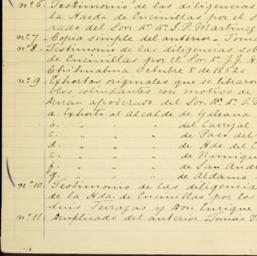 nº 6. Testimonio de las diligencias
la Hacda de Encinillas por el S
rado del Sor. Dn. Dn. J. P. Martinez
nº 7. Copia simple del anterior Tomo
nº 8. Testimonio de las diligencias sob
de Encinillas por el Sor. Dn. J. J. H
Chihuahua Octubre 8 de 1820
nº 9. Exhortos originales que se libraron
blos colindantes con motivo de
duran apoderado del Sor. Dn.
a. Exhorto al alcalde de Galeana
b. " " " del Carrizal
c. " " " de Paso del
d. " " " de Hda. del C
e. " " " de Namiqui
f. " " " de San Andr
g. " " " de Aldama
nº 10. Testimonio de las diligencias
de la Hda. de Encinillas por los
Luis Terrazas y Don Enrique
nº 11. Duplicado del anterior Tomás